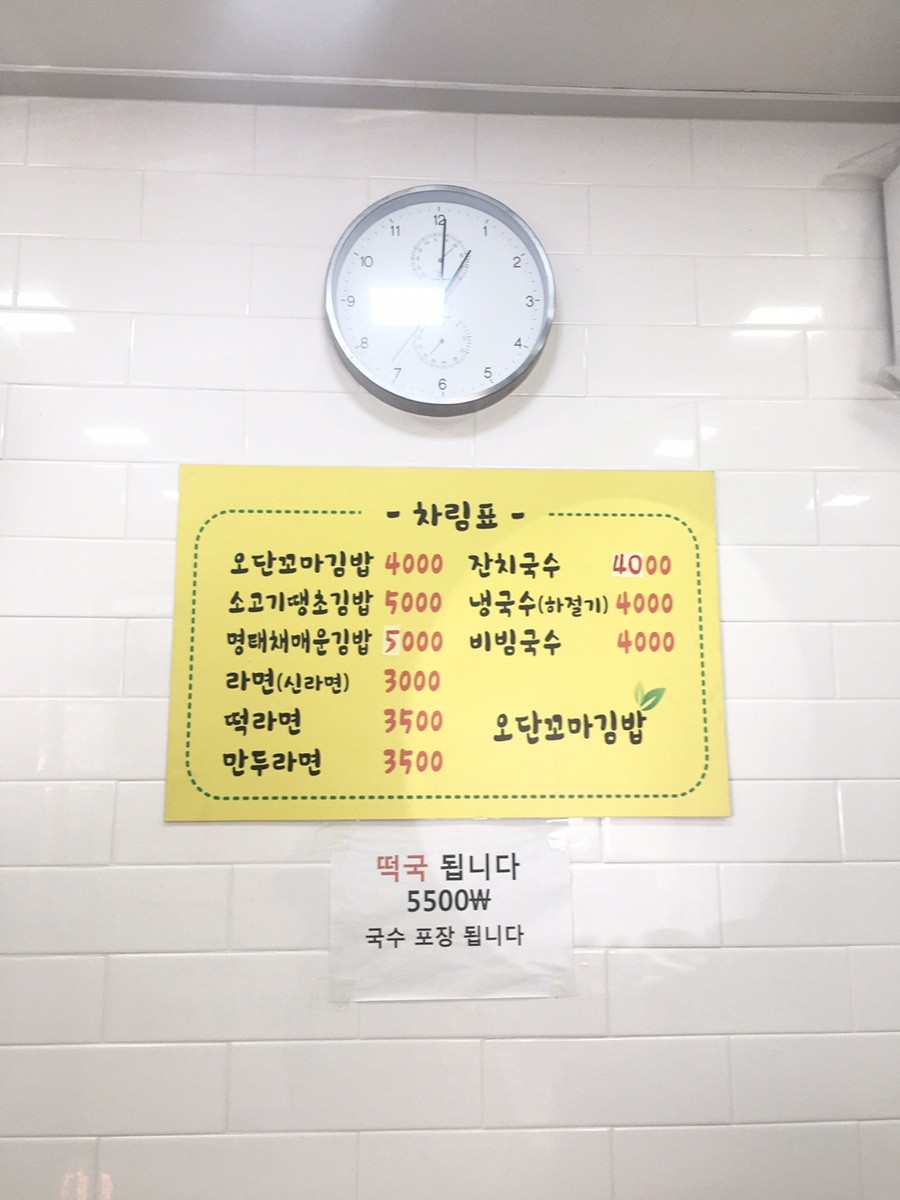 12
1
2
3
4
5
6
7
8
9
10
11
- 차림표 -
오단꼬마김밥 4000
소고기땡초김밥 5000
명태채매운김밥 5000
라면(신라면) 3000
떡라면 3500
만두라면 3500
잔치국수 4000
냉국수(하절기) 4000
비빔국수 4000
오단꼬마김밥
떡국 됩니다
5500₩
국수 포장 됩니다